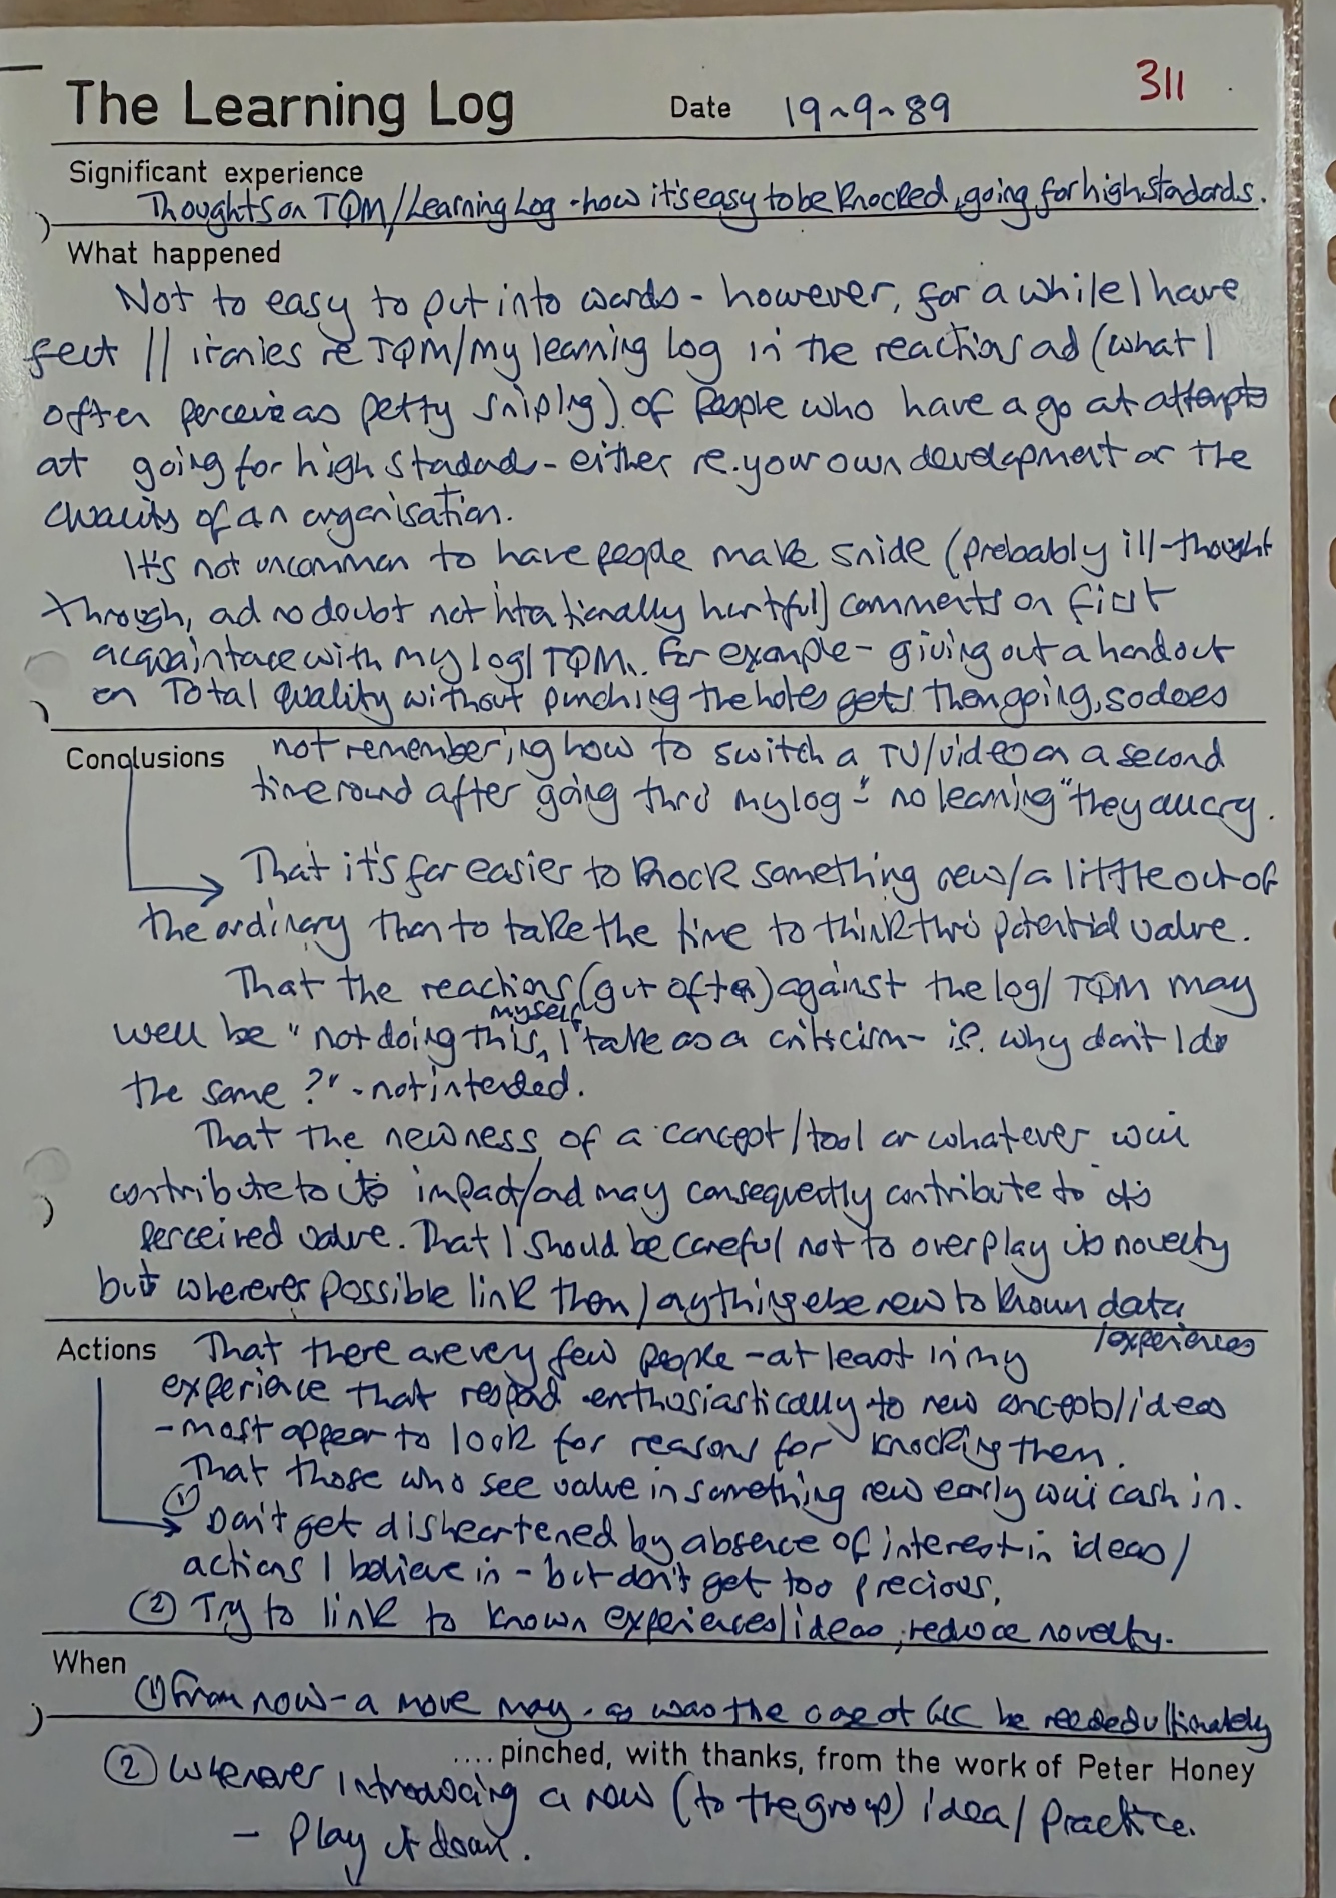 311
The Learning Log Date 19-9-89
Significant experience
Thoughts on TQM/Learning Log - how it's easy to be knocked, going for high standards.
What happened
Not to easy to put into words - however, for a while I have
feet || ironies re TQM/my learning log in the reactions ad (what I
often perceive as petty sniping) of people who have a go at attempts
at going for high stadad - either re. your own development or the
quality of an organisation.
It's not uncommon to have people make snide (probably ill-thought
through, ad no doubt not intentionally hurtful) comments on first
acquaintace with my log/TQM. For example - giving out a handout
on Total Quality without punching the holes gets them going, so does
not remembering how to switch a TV/video on a second
Conclusions
time round after going thro' my log - "no learning" they all cry.
That it's far easier to knock something new/a little out of
the ordinary than to take the time to think thro' potential value.
That the reactions (gut often) against the log/TQM may
well be "not doing this myself, I take as a criticism - ie. why don't I do
the same?" - not intended.
That the newness of a concept/tool or whatever will
contribute to its impact/ad may consequently contribute to its
perceived value. That I should be careful not to overplay its novelty
but wherever possible link them/anything else new to known data
/experiences
Actions That there are very few people - at least in my
experience that respod enthusiastically to new concepts/ideas
- most appear to look for reasons for knocking them.
That those who see value in something new early will cash in.
(1) Don't get disheartened by absence of interest in ideas/
actions I believe in - but don't get too precious.
(2) Try to link to known experiences/ideas, reduce novelty.
When
(1) From now - a move may - as was the case at be needed ultimately
.... pinched, with thanks, from the work of Peter Honey
(2) Whenever introducing a new (to the group) idea/practice.
- Play it down.